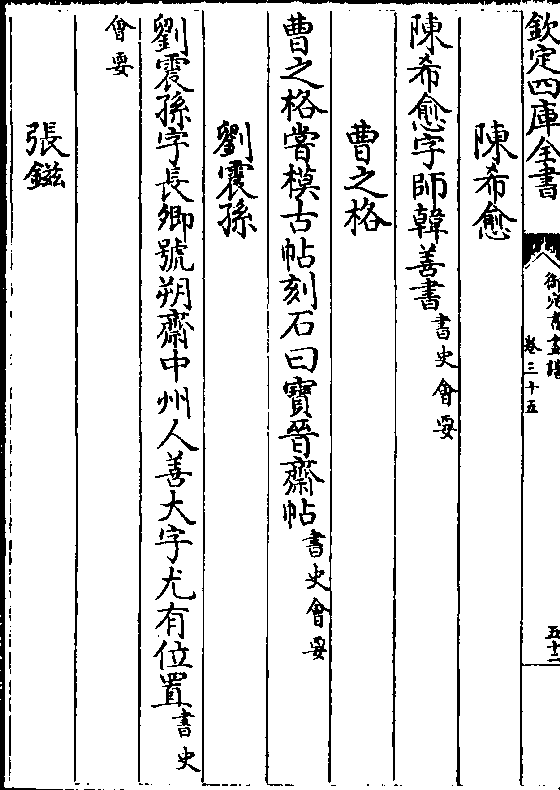 欽定四庫全書
御定書畫譜
卷三十五
五十二
陳希愈
陳希愈字師韓善書書史會要
曹之格
曹之格嘗模古帖刻石曰寶晉齋帖書史會要
劉震孫
劉震孫字長卿號朔齋中州人善大字尤有位置書史
會要
張鎡